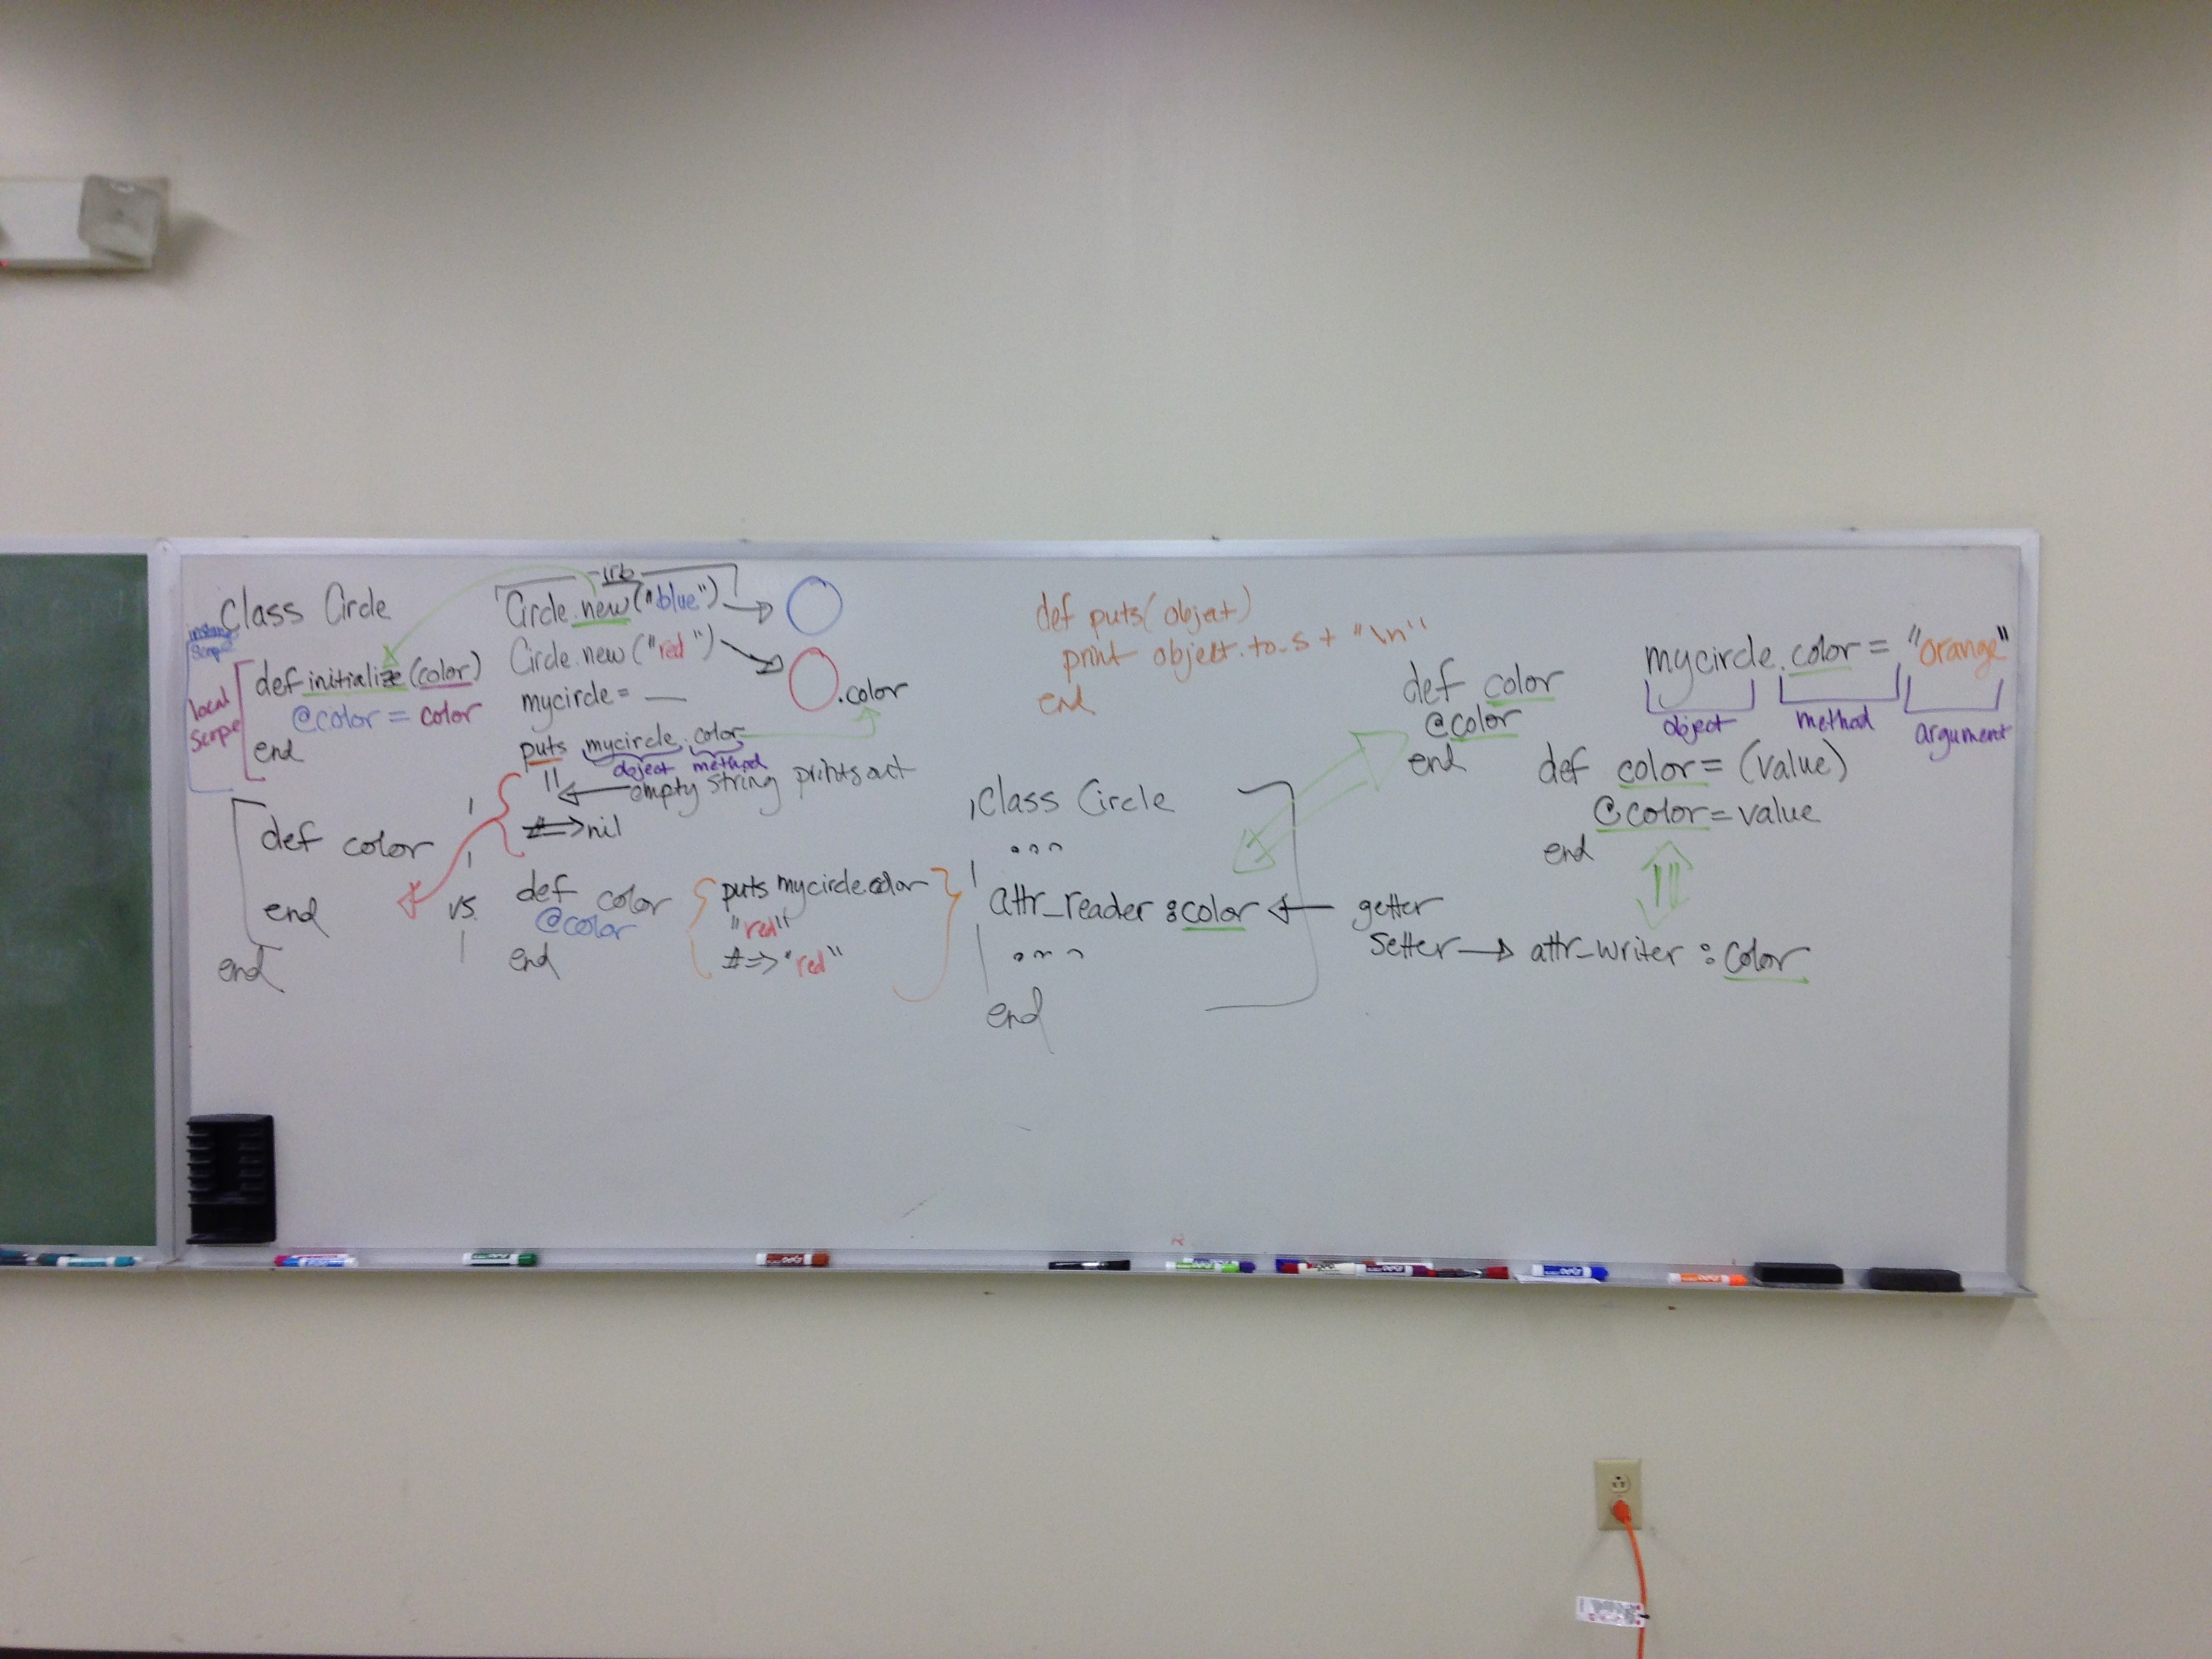 Class Circle
instance
scope
local
scope
def initialize (color)
@color = color
end
def color
end
end
irb
Circle.new("blue")
Circle.new("red")
mycircle = __
.color
puts mycircle.color
object method
"
empty string prints out
#=>nil
vs.
def color
@color
end
puts mycircle.color
"red"
#=> "red"
def puts(object)
print object.to_s + "\n"
end
class Circle
...
attr_reader :color
...
end
getter
setter
attr_writer :color
def color
@color
end
mycircle.color = "orange"
object method argument
def color=(value)
@color = value
end